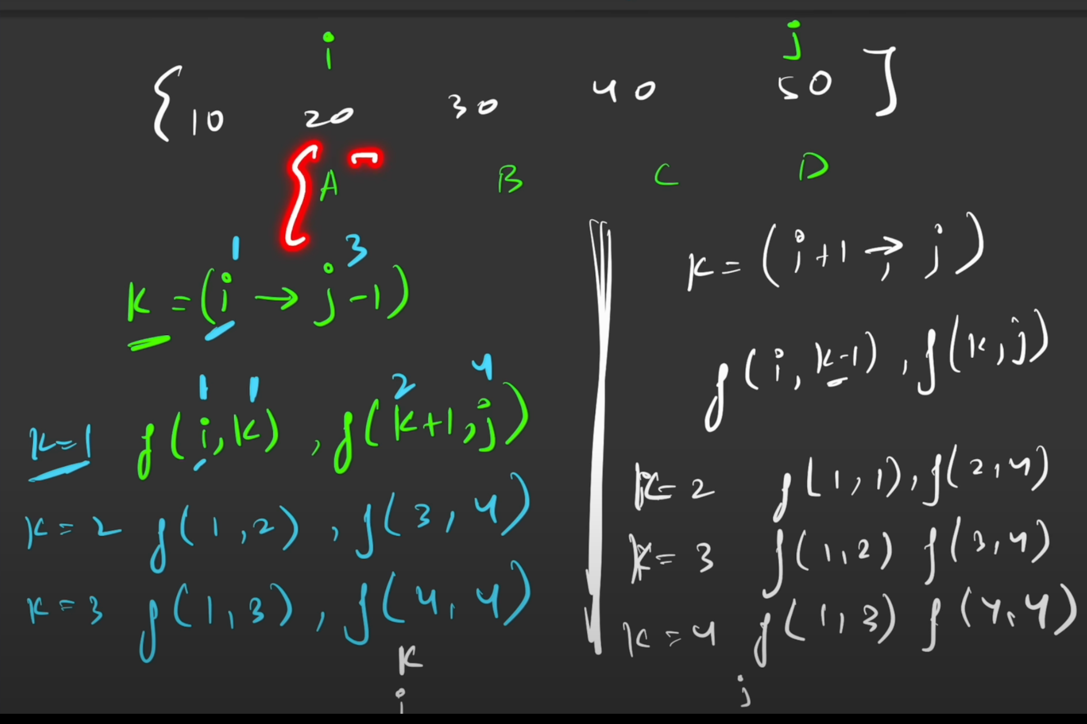 i j
{10 20 30 40 50]
{A B C D
1 3
k = (i → j-1)
1 1 2 4
k=1 f(i,k), f(k+1,j)
k=2 f(1,2), f(3,4)
k=3 f(1,3), f(4,4)
k
i
k=(i+1 → j)
f(i,k-1), f(k,j)
k=2 f(1,1), f(2,4)
k=3 f(1,2) f(3,4)
k=4 f(1,3) f(4,4)
j